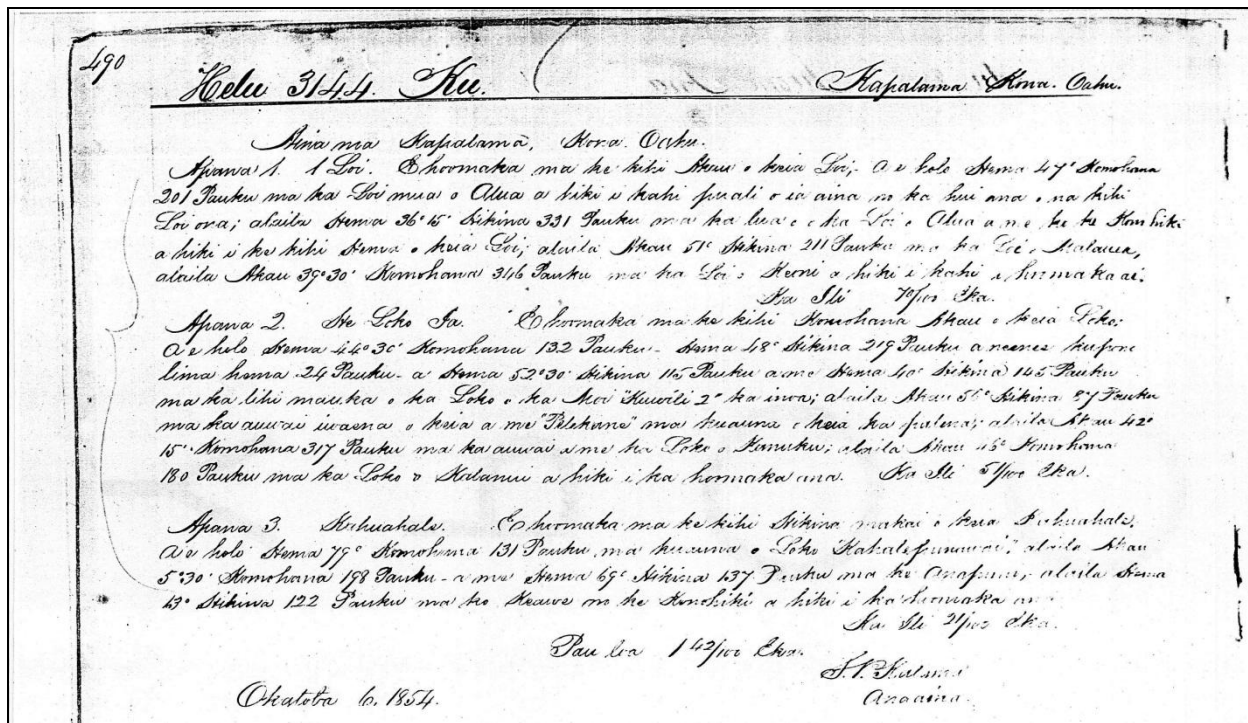 490
Helu 3144. Ku. Kapalama Kona. Oahu.
Aina ma Kapalama, Kona. Oahu.
Apana 1. 1 Loi. E hoomaka ma ke kihi Akau o keia Loi, a e holo Hema 47° Komohana
201 Pauku ma ka Loi mua o Alua a hiki i kahi puali o ia aina no ka hui ana o na kihi
Loi ona; alaila Hema 36°15' Hikina 331 Pauku ma ka lua o ka Loi o Alua a me ke Konohiki
a hiki i ke kihi Hema o keia Loi, alaila Akau 51° Hikina 211 Pauku ma ka Loi o Malauea,
alaila Akau 39°30' Komohana 346 Pauku ma ka Loi o Keoni a hiki i kahi i hoomaka ai.
Ka Ili 70/100 Eka.
Apana 2. He Loko Ia. E hoomaka ma ke kihi Komohana Akau o keia Loko;
a e holo Hema 44°30' Komohana 132 Pauku - Hema 48° Hikina 219 Pauku a neenee kupono
lima hema 24 Pauku - a Hema 52°30' Hikina 115 Pauku a me Hema 40° Hikina 145 Pauku
ma ka lihi mauka o ka Loko o ka Moi "Kuwili 2" ka inoa; alaila Akau 56° Hikina 87 Pauku
ma ka auwai iwaena o keia a me "Pelekane" ma kuauna o keia ka palena; alaila Akau 42°
15' Komohana 317 Pauku ma ka auwai a me ka Loko o Kemuku; alaila Akau 45° Komohana
180 Pauku ma ka Loko o Kalamu a hiki i ka hoomaka ana. Ka Ili 51/100 Eka.
Apana 3. Kahuahale. E hoomaka ma ke kihi Hikina makai o keia Pahuahale,
a e holo Hema 79° Komohana 131 Pauku, ma kuauna o Loko "Kahalepunawai," alaila Akau
5°30' Komohana 198 Pauku - a me Hema 69° Hikina 137 Pauku ma ko Anapuni, alaila Hema
13° Hikina 122 Pauku ma ko Keawe no ke Konohiki a hiki i ka hoomaka ana
Ka Ili 21/100 Eka.
Pau loa 1 42/100 Eka.
Okatoba 6. 1854.
Anaaina.